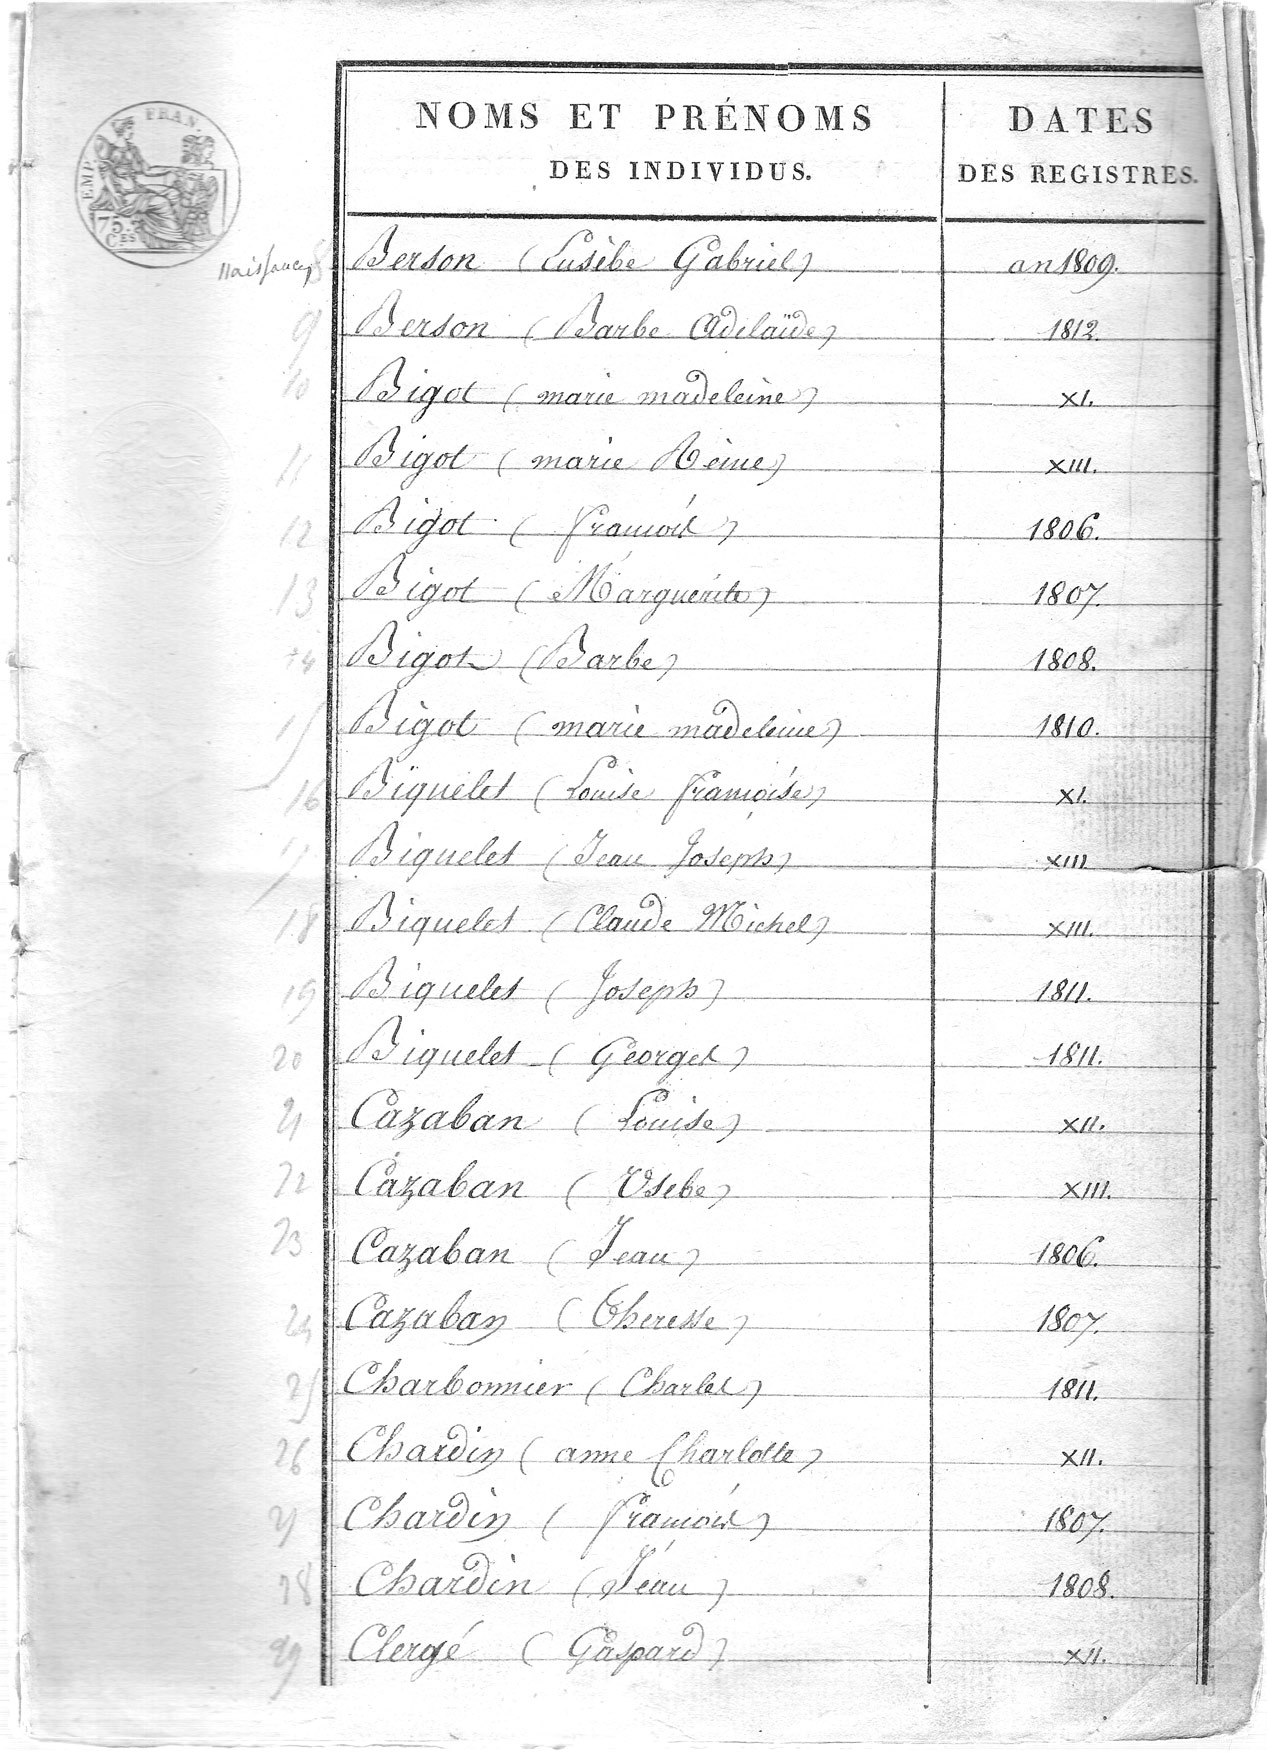 EMP. FRAN.
75.
CES
NOMS ET PRÉNOMS
DES INDIVIDUS.
DATES
DES REGISTRES.
Naissances 8 Berson (Eusèbe Gabriel) an 1809.
9 Berson (Barbe Adelaïde) 1812.
10 Bigot (marie madeleine) XI.
11 Bigot (marie Reine) XIII.
12 Bigot (François) 1806.
13 Bigot (Marguerite) 1807.
14 Bigot (Barbe) 1808.
15 Bigot (marie madeleine) 1810.
16 Biquelet (Louise Françoise) XI.
17 Biquelet (Jean Joseph) XIII
18 Biquelet (Claude Michel) XIII.
19 Biquelet (Joseph) 1811.
20 Biquelet (Georges) 1811.
21 Cazaban (Louise) XII.
22 Cazaban (Usebe) XIII.
23 Cazaban (Jean) 1806.
24 Cazaban (Theresse) 1807.
25 Charbonnier (Charles) 1811.
26 Chardin (anne Charlotte) XII.
27 Chardin (François) 1807.
28 Chardin (Jean) 1808.
29 Clergé (Gaspard) XII.